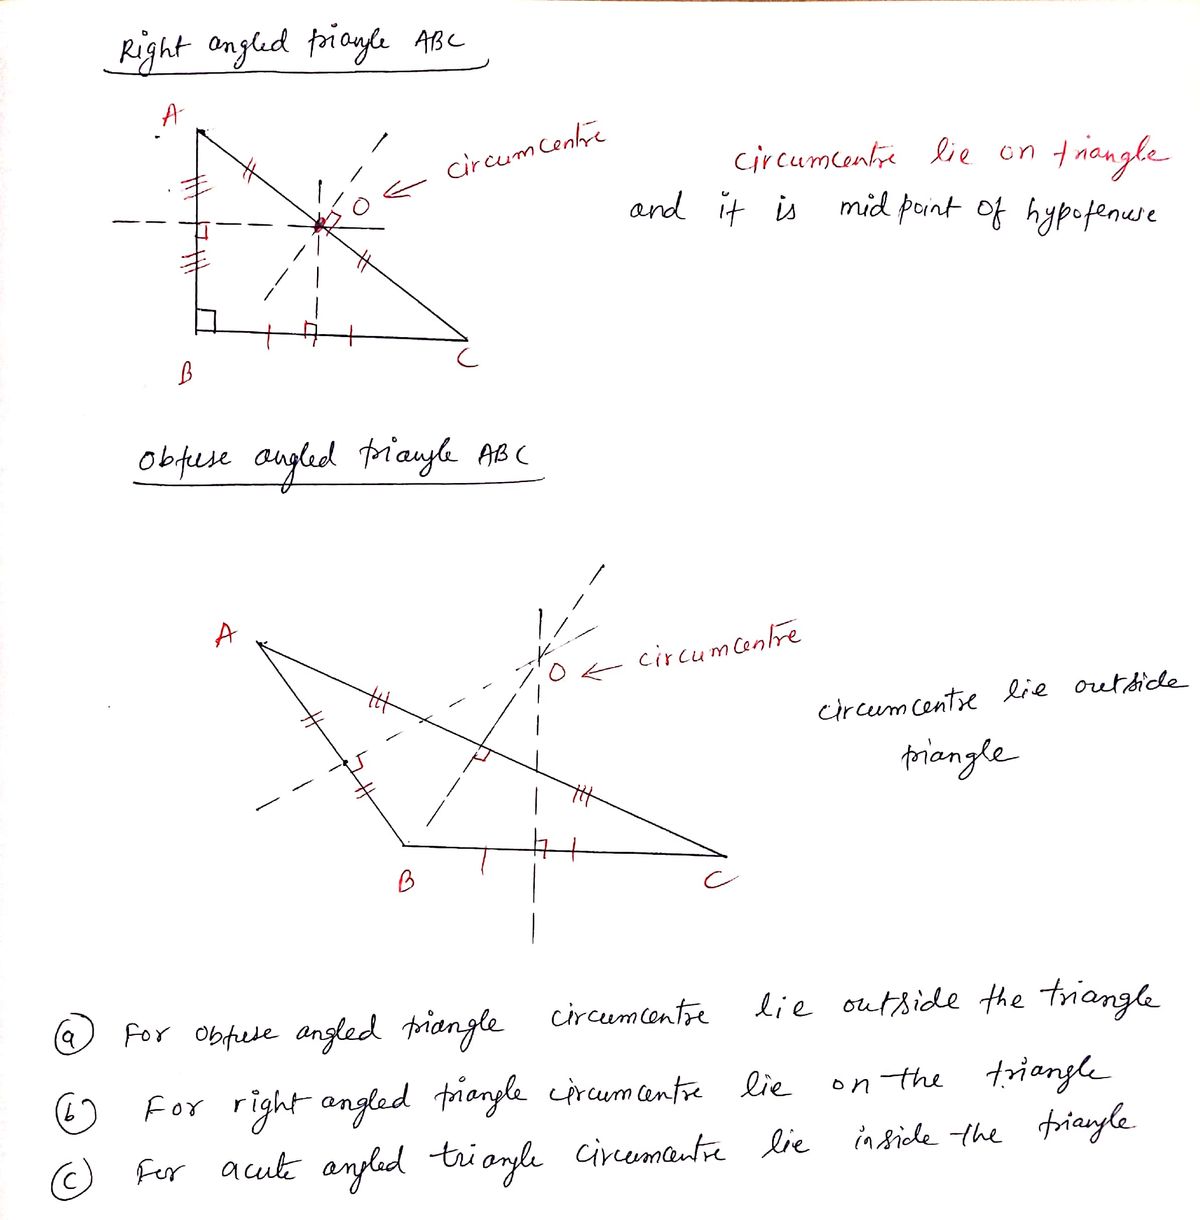 Right angled triangle ABC
A
circumcentre
O
circumcentre lie on triangle
and it is mid point of hypotenuse
B
C
Obtuse angled triangle ABC
A
O
circumcentre
circumcentre lie outside
triangle
B
C
(a) For obtuse angled triangle circumcentre lie outside the triangle
(b) For right angled triangle circumcentre lie on the triangle
(c) For acute angled triangle circumcentre lie inside the triangle